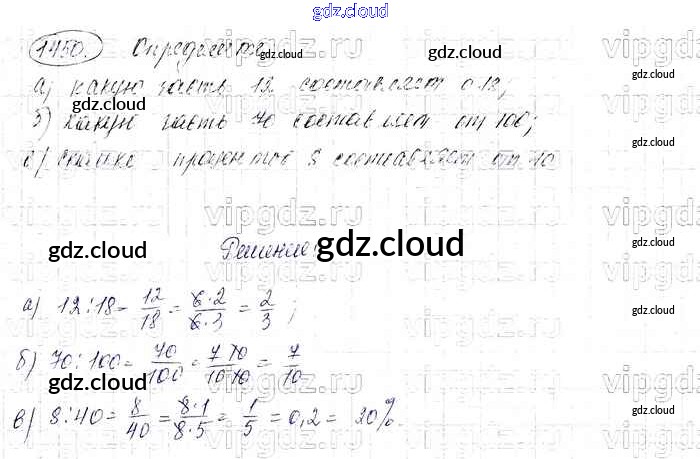 gdz.cloud
1450. Определите gdz.cloud
а) какую часть 12 составляет от 18;
gdz.cloud gdz.cloud
б) какую часть 70 составляет от 100;
gdz.cloud
в) сколько процентов 8 составляет от 40
vipgdz.ru vipgdz.ru vipgdz.ru
gdz.cloud Решение gdz.cloud gdz.cloud
а) 12:18 = 12/18 = 6·2/6·3 = 2/3;
б) 70:100 = 70/100 = 7·10/10·10 = 7/10
gdz.cloud gdz.cloud gdz.cloud
в) 8:40 = 8/40 = 8·1/8·5 = 1/5 = 0,2 = 20%.